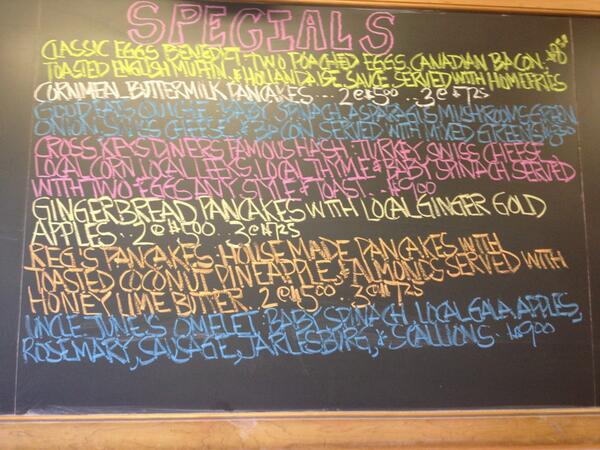 SPECIALS
CLASSIC EGGS BENEDICT: TWO POACHED EGGS, CANADIAN BACON,
TOASTED ENGLISH MUFFIN, & HOLLANDAISE SAUCE SERVED WITH HOMEFRIES
CORNMEAL BUTTERMILK PANCAKES... 2 @ $5.00 ...3 @ $7.25
QUICHE: BABY SPINACH, ASPARAGUS, MUSHROOMS, GREEN
ONION, SWISS CHEESE, & BACON SERVED WITH MIXED GREENS
CROSS KEYS DINERS FAMOUS HASH: TURKEY, SWISS CHEESE,
LOCAL CORN, LOCAL LEEKS, LOCAL THYME & BABY SPINACH SERVED
WITH TWO EGGS ANY STYLE & TOAST... $9.00
GINGERBREAD PANCAKES WITH LOCAL GINGER GOLD
APPLES... 2 @ $5.00 ...3 @ $7.25
REG'S PANCAKES: HOUSE MADE PANCAKES WITH
TOASTED COCONUT, PINEAPPLE, & ALMONDS SERVED WITH
HONEY LIME BUTTER. 2 @ $5.00 ...3 @ $7.25
UNCLE JUNE'S OMELET: BABY SPINACH, LOCAL GALA APPLES,
ROSEMARY, SAUSAGE, JARLSBURG, & SCALLIONS... $9.00